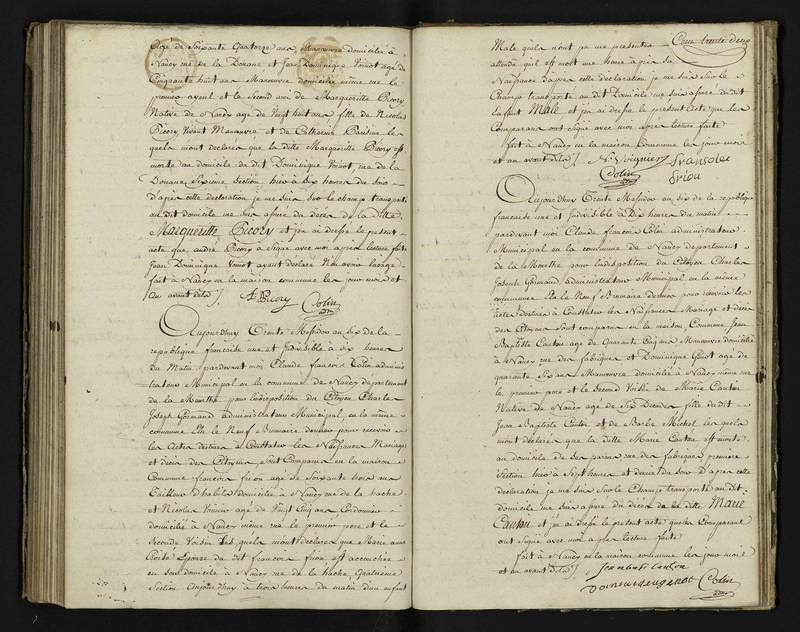 agé de Soixante Quatorze ans, Manœuvre domicilié à
Nancy rue de la Douane et Jean Dominique Voinot age de
Cinquante huit ans Manœuvre domicilié même rue le
premier ayeul et le Second ami de Marguerithe Picory
Native de Nancy age de Vingt huit ans fille de Nicolas
Picory Vivant Manœuvre et de Catherine Pauline les
quels mont declarés que la ditte Marguerithe Picory est
morte au domicile du dit Dominique Voinot, rue de la
Douane Sixieme Section hier à Six heures du Soir
d'apres cette declaration je me suis sur le champ transporté
au dit domicile me suis assuré du décès de la ditte
Marguerithe Picory et j'ai dressé le present
acte que andré Picory à Signé avec moi apres lecture faite
Jean Dominique Voinot ayant declaré n'en avoir lusage
fait à Nancy en la maison commune les jour mois et
an avant dits /. A Picory Colin
adm
Aujourdhuy Trente Messidor an six de la
republique française une et Indivisible à dix heures
du Matin pardevant moi Claude françois Colin adminis
trateur Municipal en la commune de Nancy departement
de la Meurthe pour lindisposition du Citoyen Charles
Joseph Germand administrateur Municipal en la même
commune Elu le Neuf Brumaire dernier pour recevoir
les Actes destinés à Constater les Naissances Mariages
et décès des Citoyens, Sont Comparus en la maison
Commune francois frion agé de Soixante trois ans
Tailleur d'habits domicilié à Nancy rue de la hache
et Nicolas Voinier age de Vingt Cinq ans Cordonnier
domicilié à Nancy même rue le premier pere et le
Seconde Voisin Les quels mont declarés que Marie anne
Epouse du dit francois frion est accouchée
en son domicile à Nancy rue de la hache, Quatrieme
Section Aujourdhuy à trois heures du matin d'un enfant
Cent trente deux
Male quils n'ont pu me presenter
attendu qu'il est mort une heure apres sa
Naissance d'apres cette declaration je me suis sur le
Champ transporté au dit Domicile me suis assuré du dit
Enfant Male et j'ai dressé le present acte que les
Comparans ont Signé avec moi apres lecture faite
fait à Nancy en la maison Commune les jour mois
et an avant dits /. N. Voignier fransoiee
Colin frion
adm
Aujourdhuy Trente Messidor an six de la republique
francaise une et Indivisible à Dix heures du matin
pardevant moi Claude francois Colin administrateur
Municipal en la commune de Nancy departement
de la Meurthe pour lindisposition du Citoyen Charles
Joseph Germand administrateur Municipal en la même
commune Elu le Neuf Brumaire dernier pour recevoir les
actes destinés à Constater les Naissances Mariage et décès
des Citoyens Sont comparus en la maison Commune Jean
Baptiste Cauton age de Quarante Cinq ans Manœuvre domicilié
à Nancy rue des fabriques et Dominique Guiot age de
quarante Six ans Manœuvre domicilié à Nancy même rue
le premier pere et le Second Voisin de Marie Cauton
Native de Nancy agé de Six Decades fille du dit
Jean Baptiste Cauton et de Barbe Michel les quels
mont declarés que la ditte Marie Cauton est morte
au domicile de ses parens rue des fabriques premiere
Section hier à Sept heures et demie du soir D'apres cette
declaration je me suis Sur le Champ transporté au dit
domicile me suis assuré du décès de la ditte Marie
Cauton et j'ai dressé le present acte que les Comparant
ont Signé avec moi apres lecture faite
fait à Nancy en la maison commune les jour mois
et an avant dits /. Jean batis Cauton
Dominique genot Colin
adm